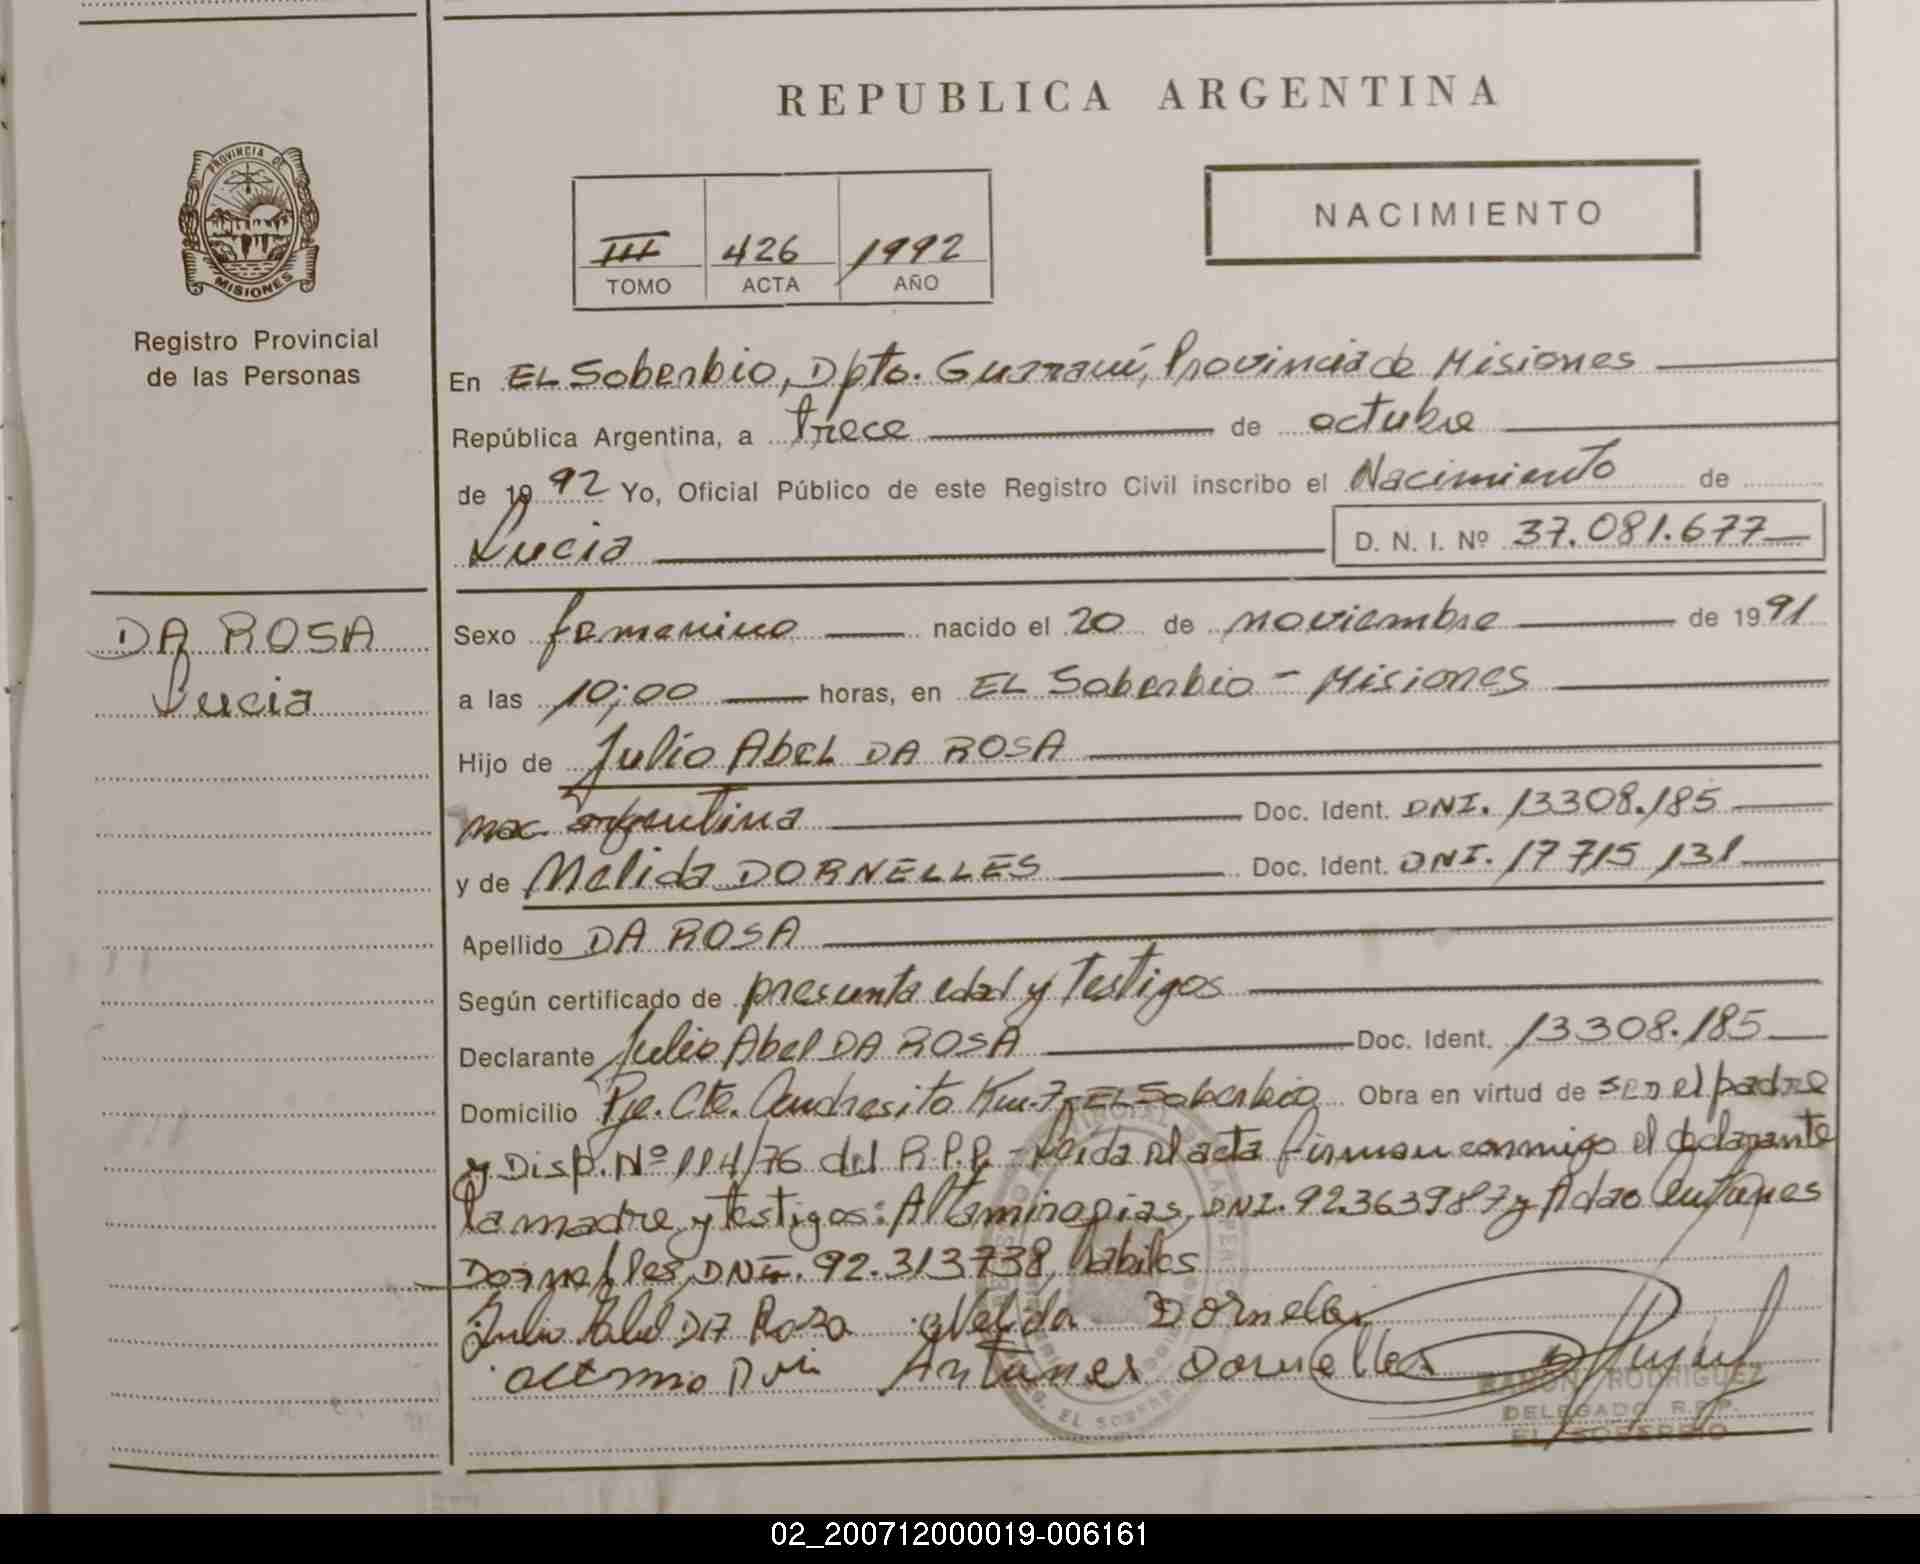 REPUBLICA ARGENTINA
PROVINCIA DE
MISIONES
NACIMIENTO
III 426 1992
TOMO ACTA AÑO
Registro Provincial
de las Personas
En EL Soberbio, Dpto. Guaraní, Provincia de Misiones
República Argentina, a trece de octubre
de 1992 Yo, Oficial Público de este Registro Civil inscribo el Nacimiento de
Lucia D. N. I. Nº 37.081.677
DA ROSA
Lucia
Sexo femenino nacido el 20 de noviembre de 1991
a las 10;00 horas, en EL Soberbio - Misiones
Hijo de Julio Abel DA ROSA
nac. argentina Doc. Ident. DNI. 13308.185
y de Melida DORNELLES Doc. Ident. DNI. 17 715 131
Apellido DA ROSA
Según certificado de presunta edad y Testigos
Declarante Julio Abel DA ROSA Doc. Ident. 13308.185
Domicilio Pje. Cte. Andresito Km.7-EL Soberbio Obra en virtud de ser el padre
y Disp. Nº 114/76 del R.P.P. - Leida el acta firman conmigo el declarante
la madre y testigos: Altamiro pias, DNI. 92.363987 y Adao Antunes
Dornelles, DNI. 92.313738, habiles
Julio Abel DA Rosa Nelda Dornelles
Antunes Dornelles
RAMON RODRIGUEZ
DELEGADO R.P.P.
EL SOBERBIO
02_200712000019-006161